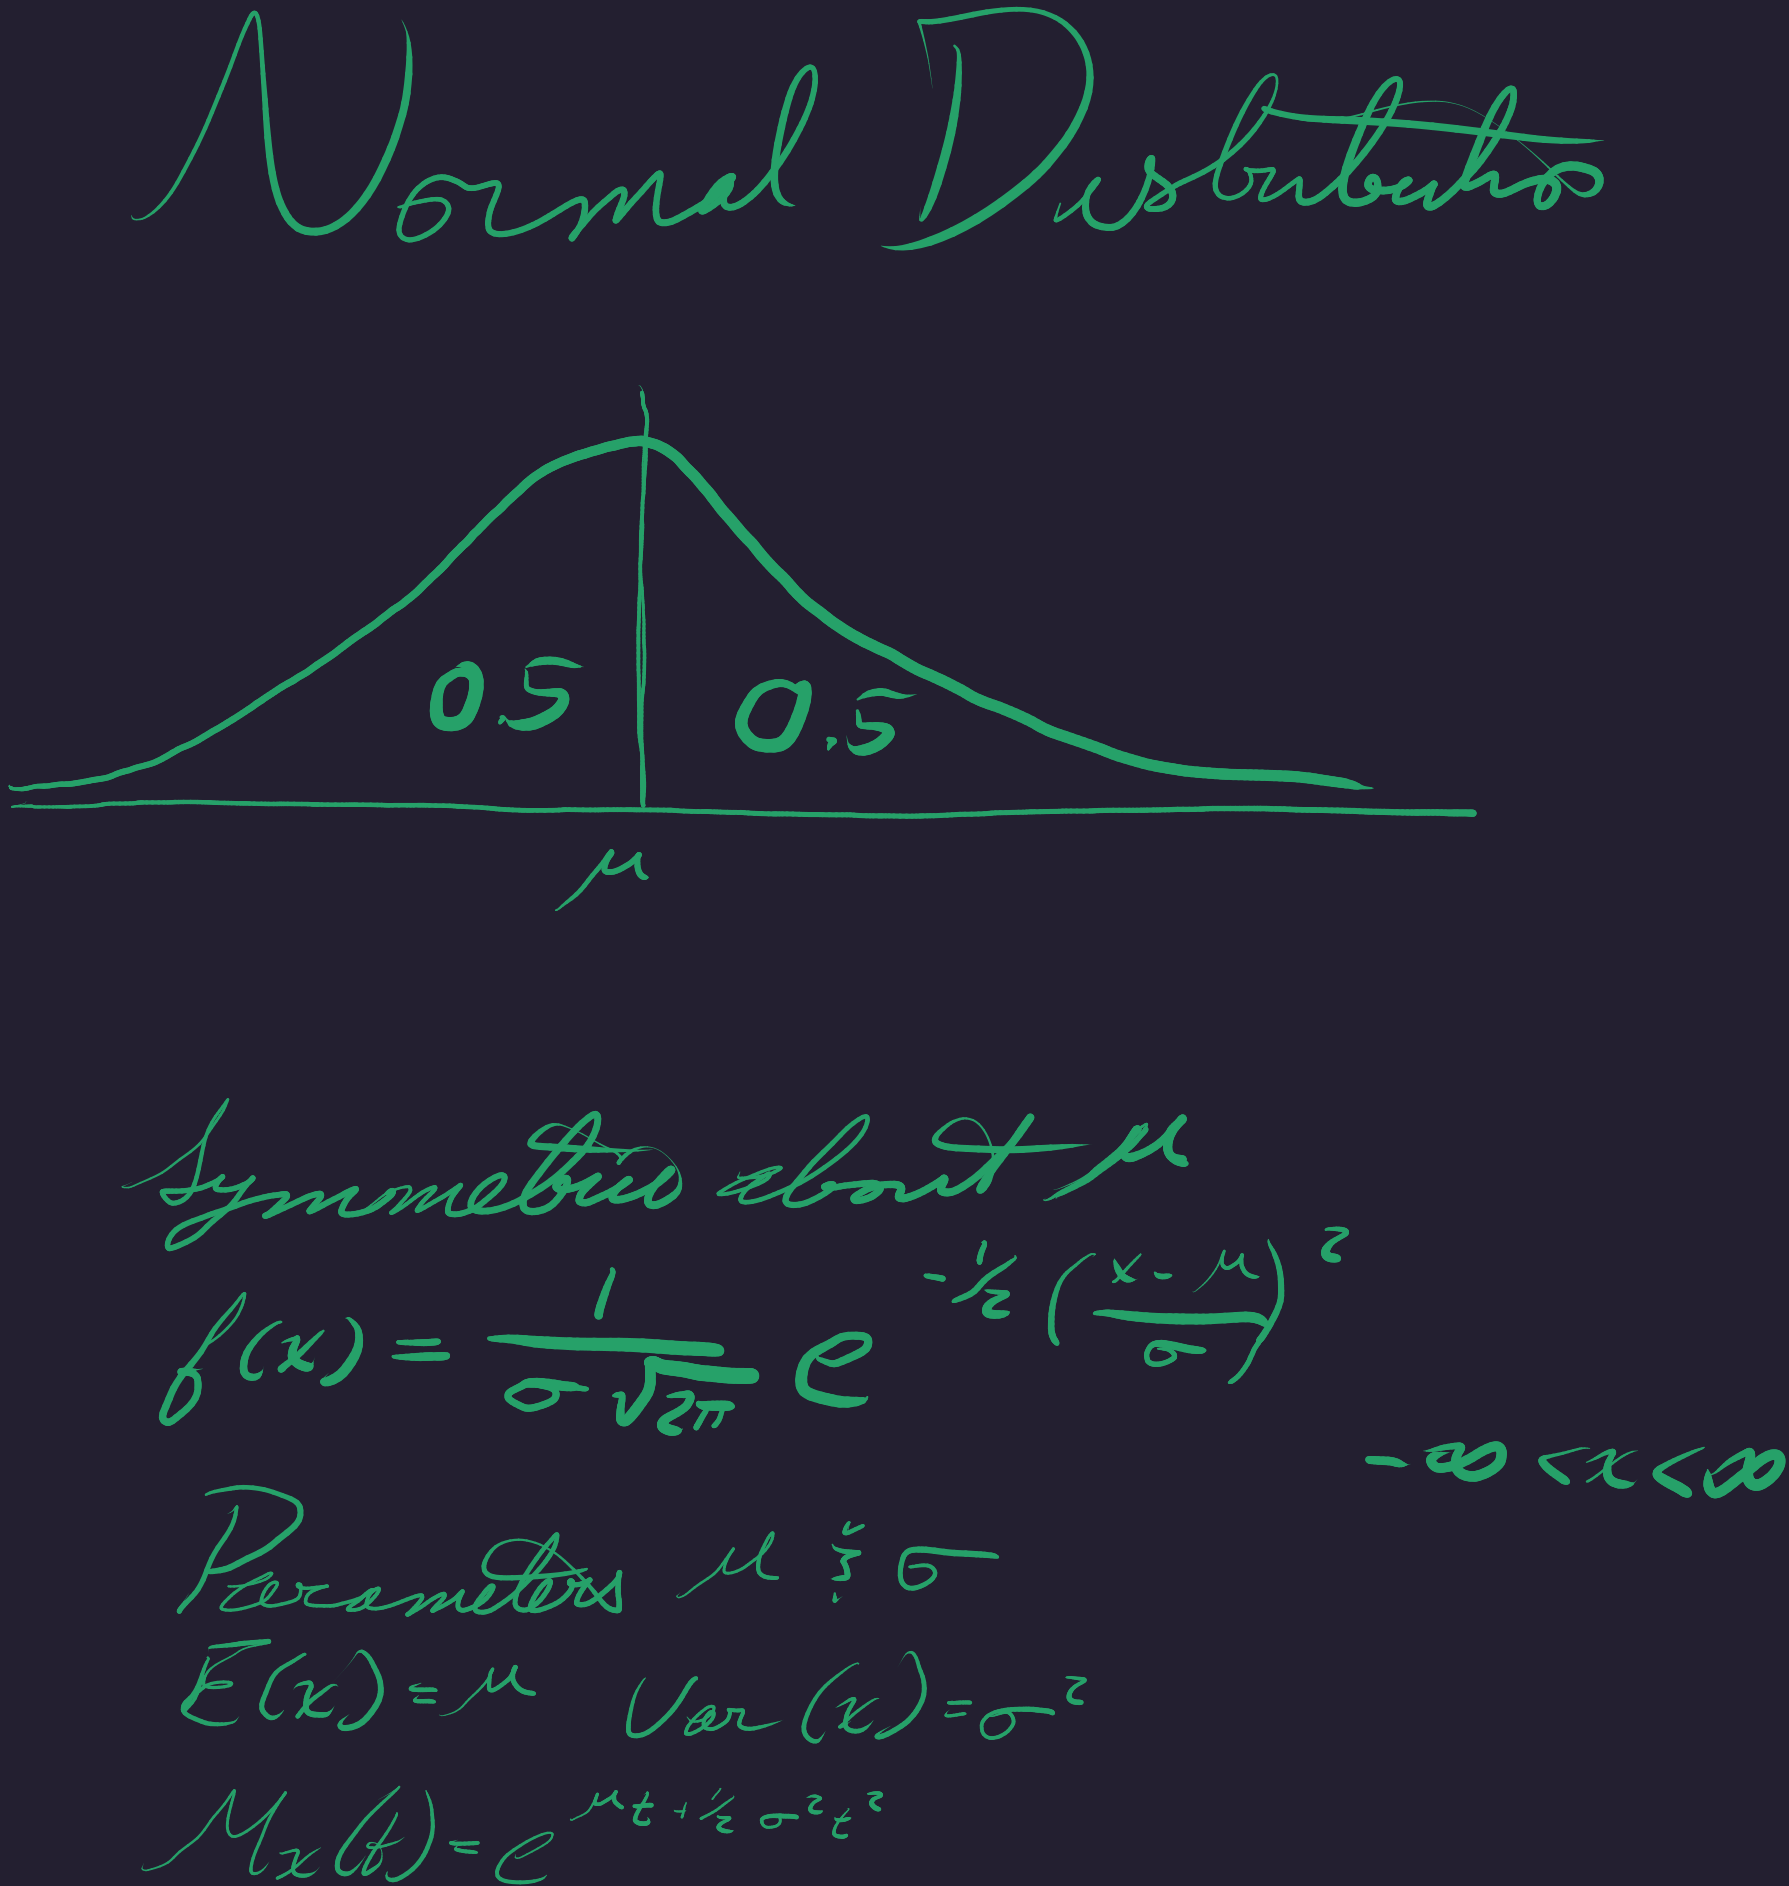 Normal Distribution
0.5 0.5
μ
Symmetric about μ
f(x) = 1/(σ√2π) e^(-1/2 ((x-μ)/σ)^2)
-∞ < x < ∞
Parameters μ & σ
E(x) = μ Var(x) = σ²
Mx(t) = e^(μt + 1/2 σ²t²)